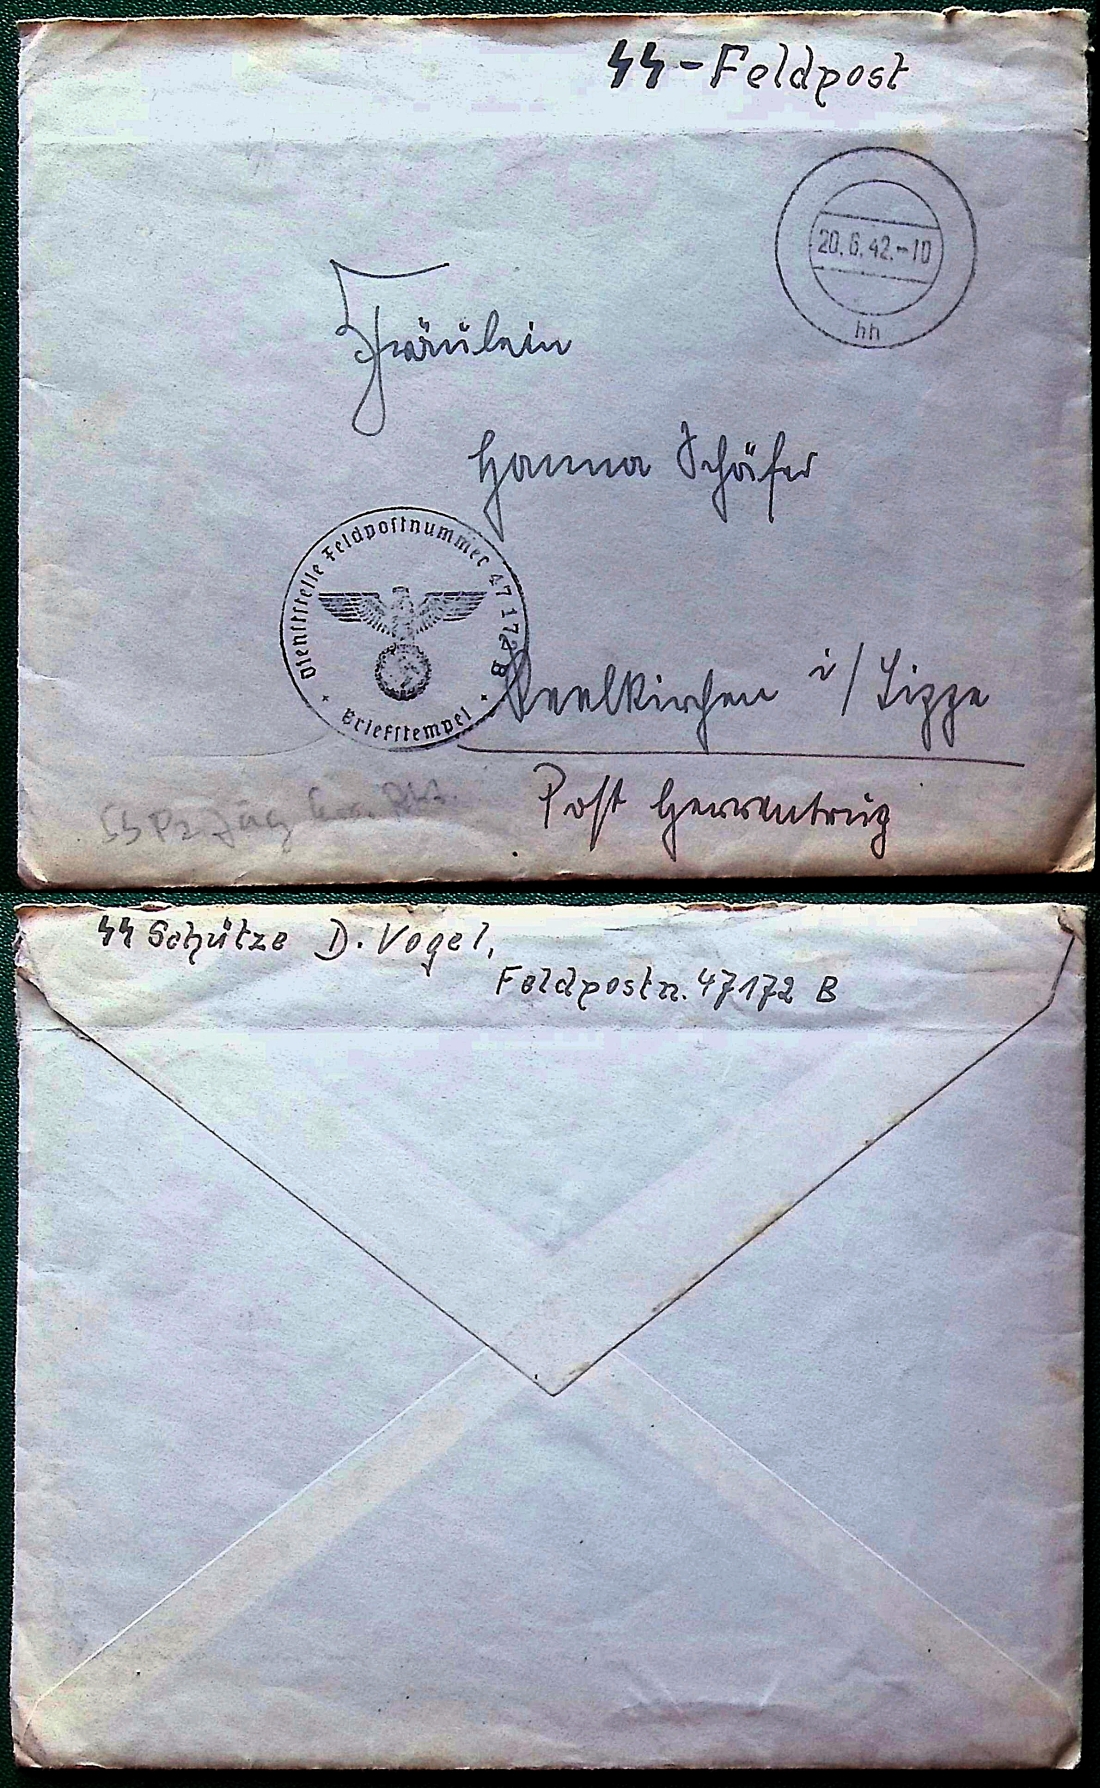 SS-Feldpost
20.6.42.-10
hh
Fräulein
Hanna Schäfer
Dienststelle Feldpostnummer 47172 B
Briefstempel
Reelkirchen i/Lippe
Post Herrentrup
SS Pz Jäg
SS Schütze D. Vogel,
Feldpostn. 47172 B